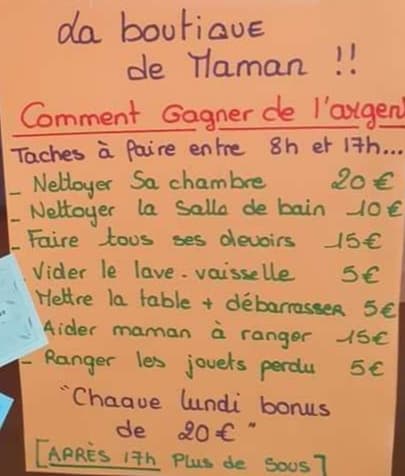 La boutique
de Maman !!
Comment Gagner de l'argent
Taches à faire entre 8h et 17h...
_ Nettoyer Sa chambre 20 €
_ Nettoyer la Salle de bain 10 €
_ Faire tous ses devoirs 15€
Vider le lave-vaisselle 5€
Mettre la table + débarrasser 5€
Aider maman à ranger 15€
_ Ranger les jouets perdu 5€
"Chaque lundi bonus
de 20 €"
[APRÈS 17h Plus de Sous]